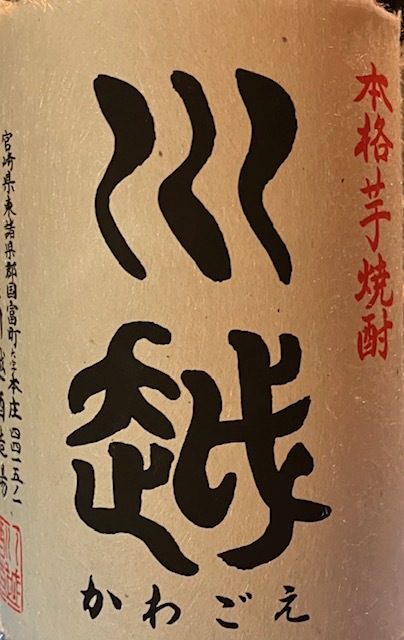 本格芋焼酎
川越
かわごえ
宮崎県東諸県郡国富町大字本庄四四一五ノ一
川越酒造場